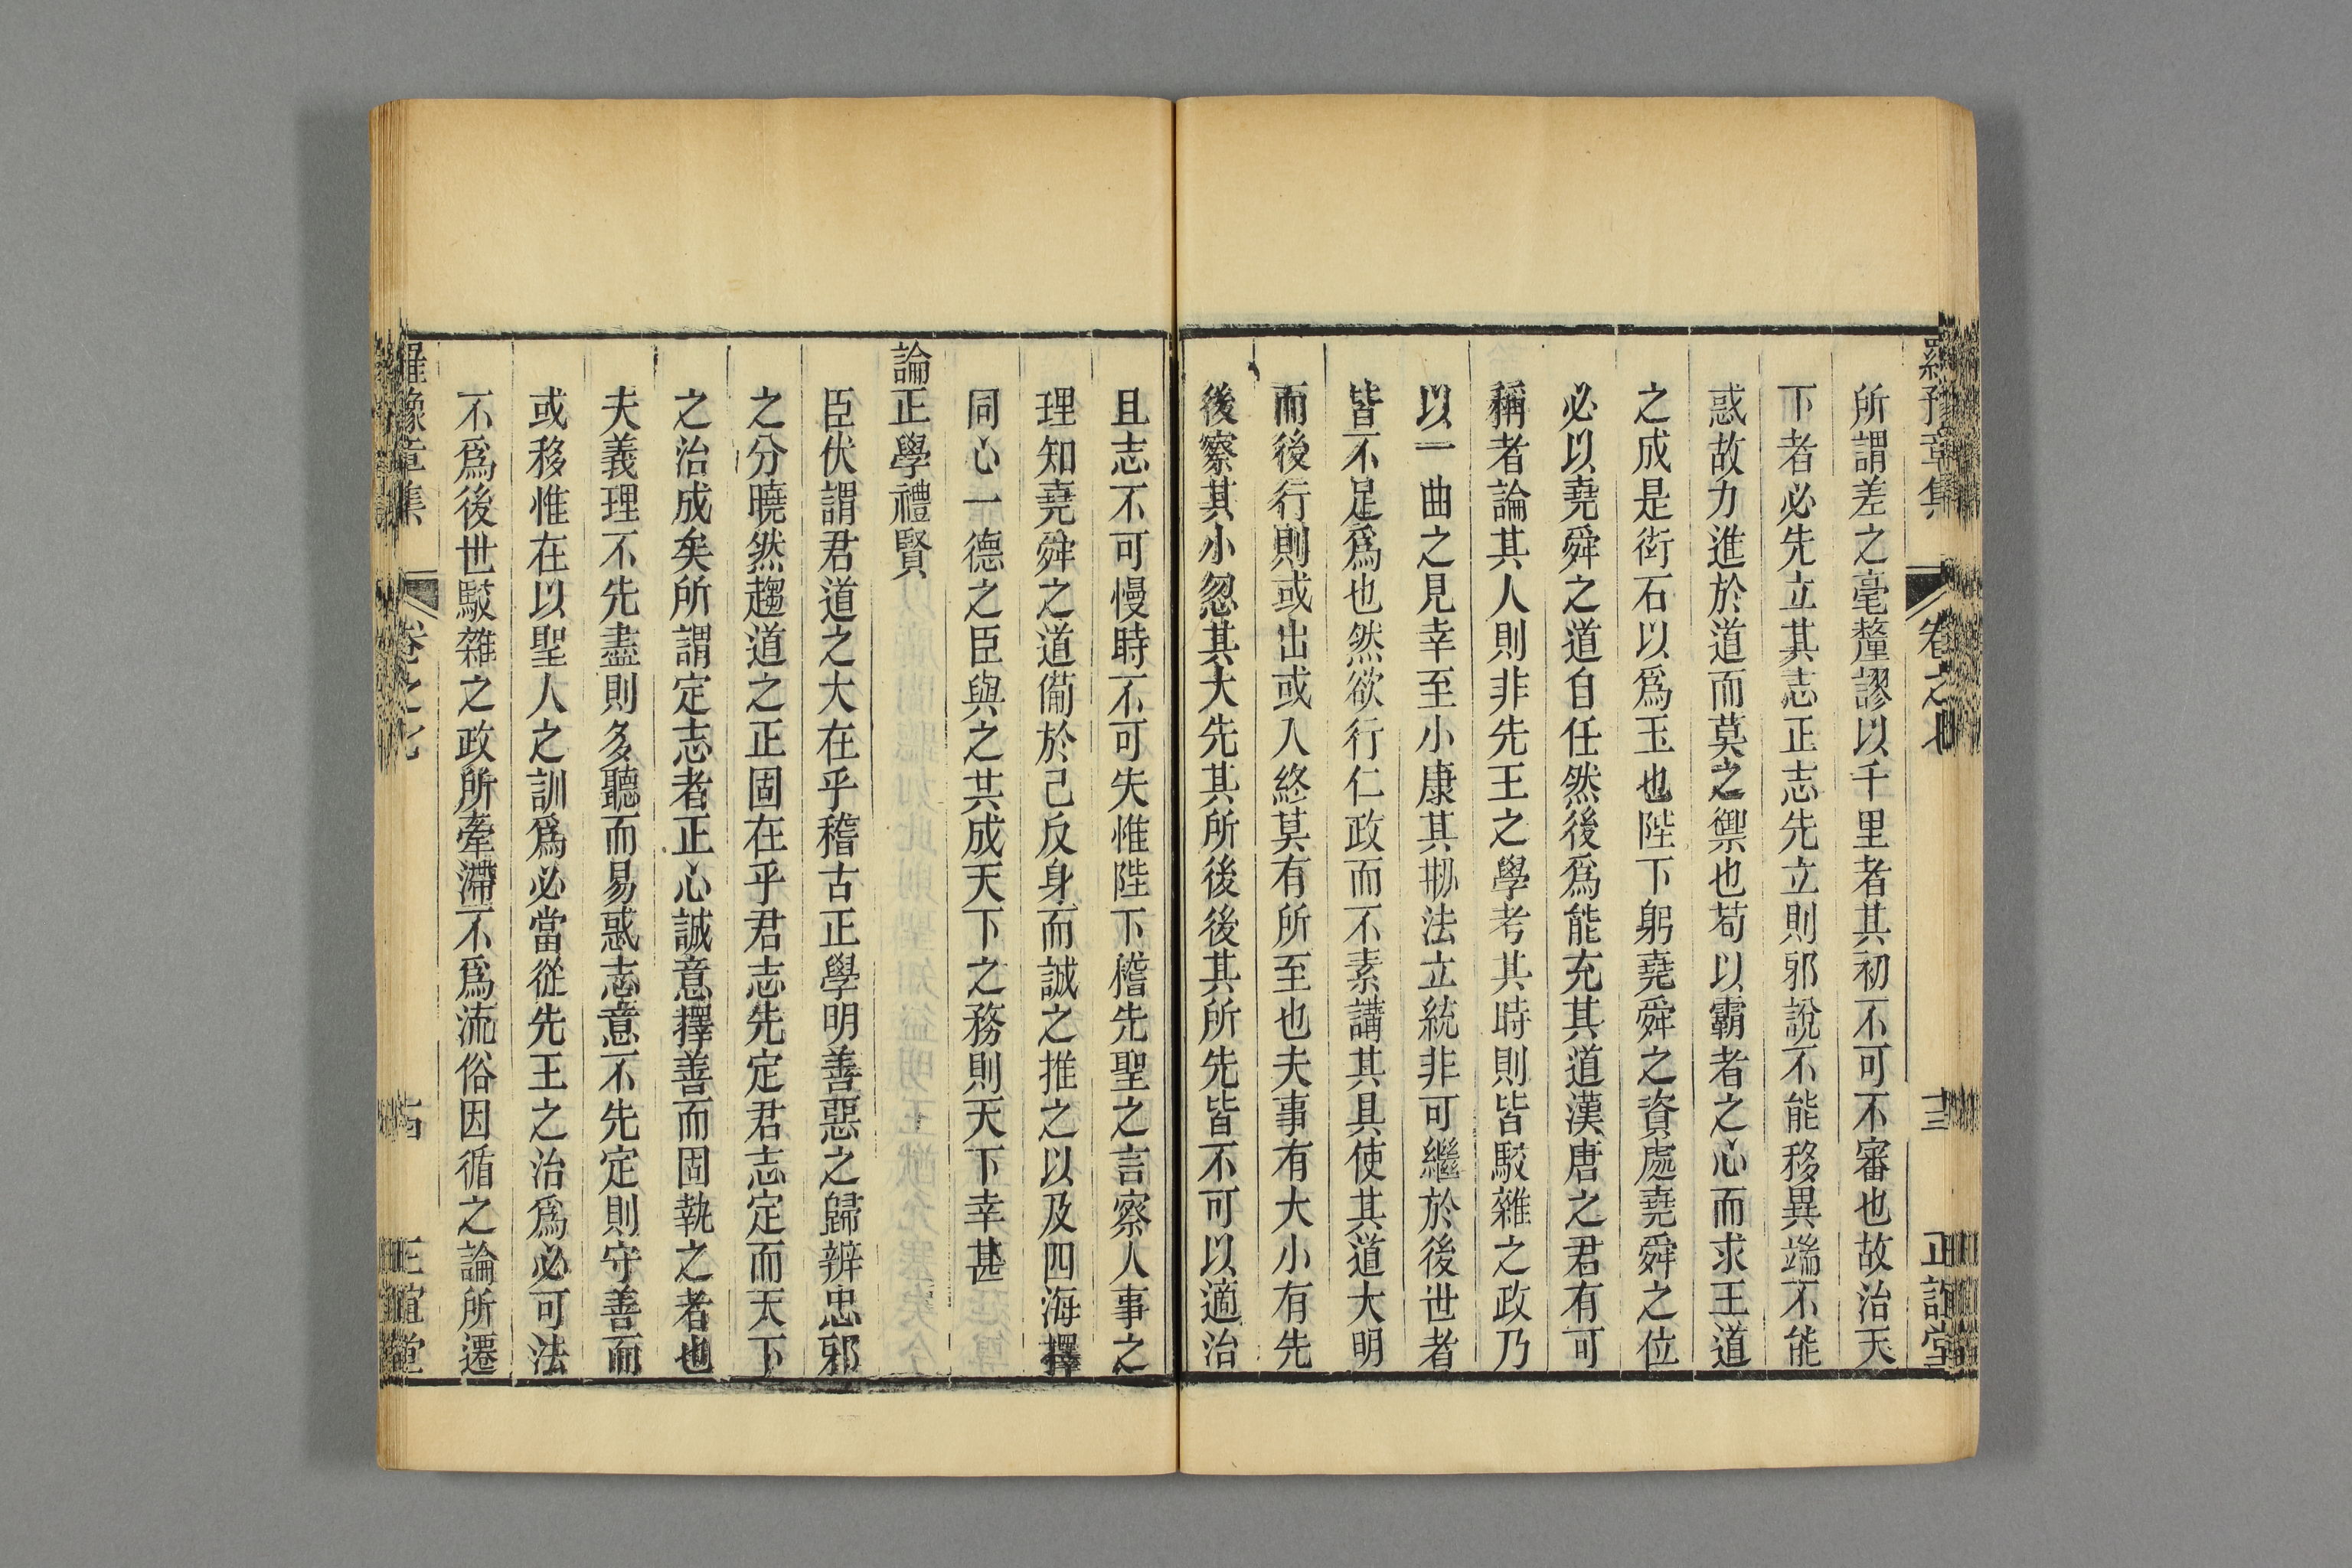 羅豫章集 卷之七 十三 正誼堂
所謂差之毫釐謬以千里者其初不可不審也故治天
下者必先立其志正志先立則邪說不能移異端不能
惑故力進於道而莫之禦也苟以霸者之心而求王道
之成是衒石以爲玉也陛下躬堯舜之資處堯舜之位
必以堯舜之道自任然後爲能充其道漢唐之君有可
稱者論其人則非先王之學考其時則皆駁雜之政乃
以一曲之見幸至小康其刱法立統非可繼於後世者
皆不足爲也然欲行仁政而不素講其具使其道大明
而後行則或出或入終莫有所至也夫事有大小有先
後察其小忽其大先其所後後其所先皆不可以適治
且志不可慢時不可失惟陛下稽先聖之言察人事之
理知堯舜之道備於己反身而誠之推之以及四海擇
同心一德之臣與之共成天下之務則天下幸甚
論正學禮賢
臣伏謂君道之大在乎稽古正學明善惡之歸辨忠邪
之分曉然趨道之正固在乎君志先定君志定而天下
之治成矣所謂定志者正心誠意擇善而固執之者也
夫義理不先盡則多聽而易惑志意不先定則守善而
或移惟在以聖人之訓爲必當從先王之治爲必可法
不爲後世駁雜之政所牽滯不爲流俗因循之論所遷
羅豫章集 卷之七 十四 正誼堂